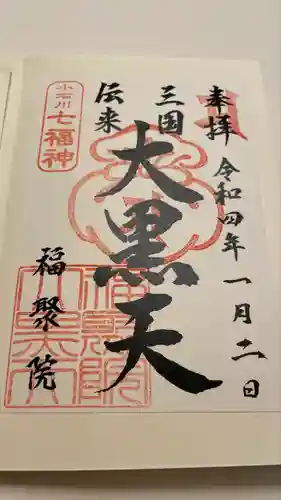 奉拝
令和四年一月二日
三国
伝来
大黒天
福聚院
小石川
七福神